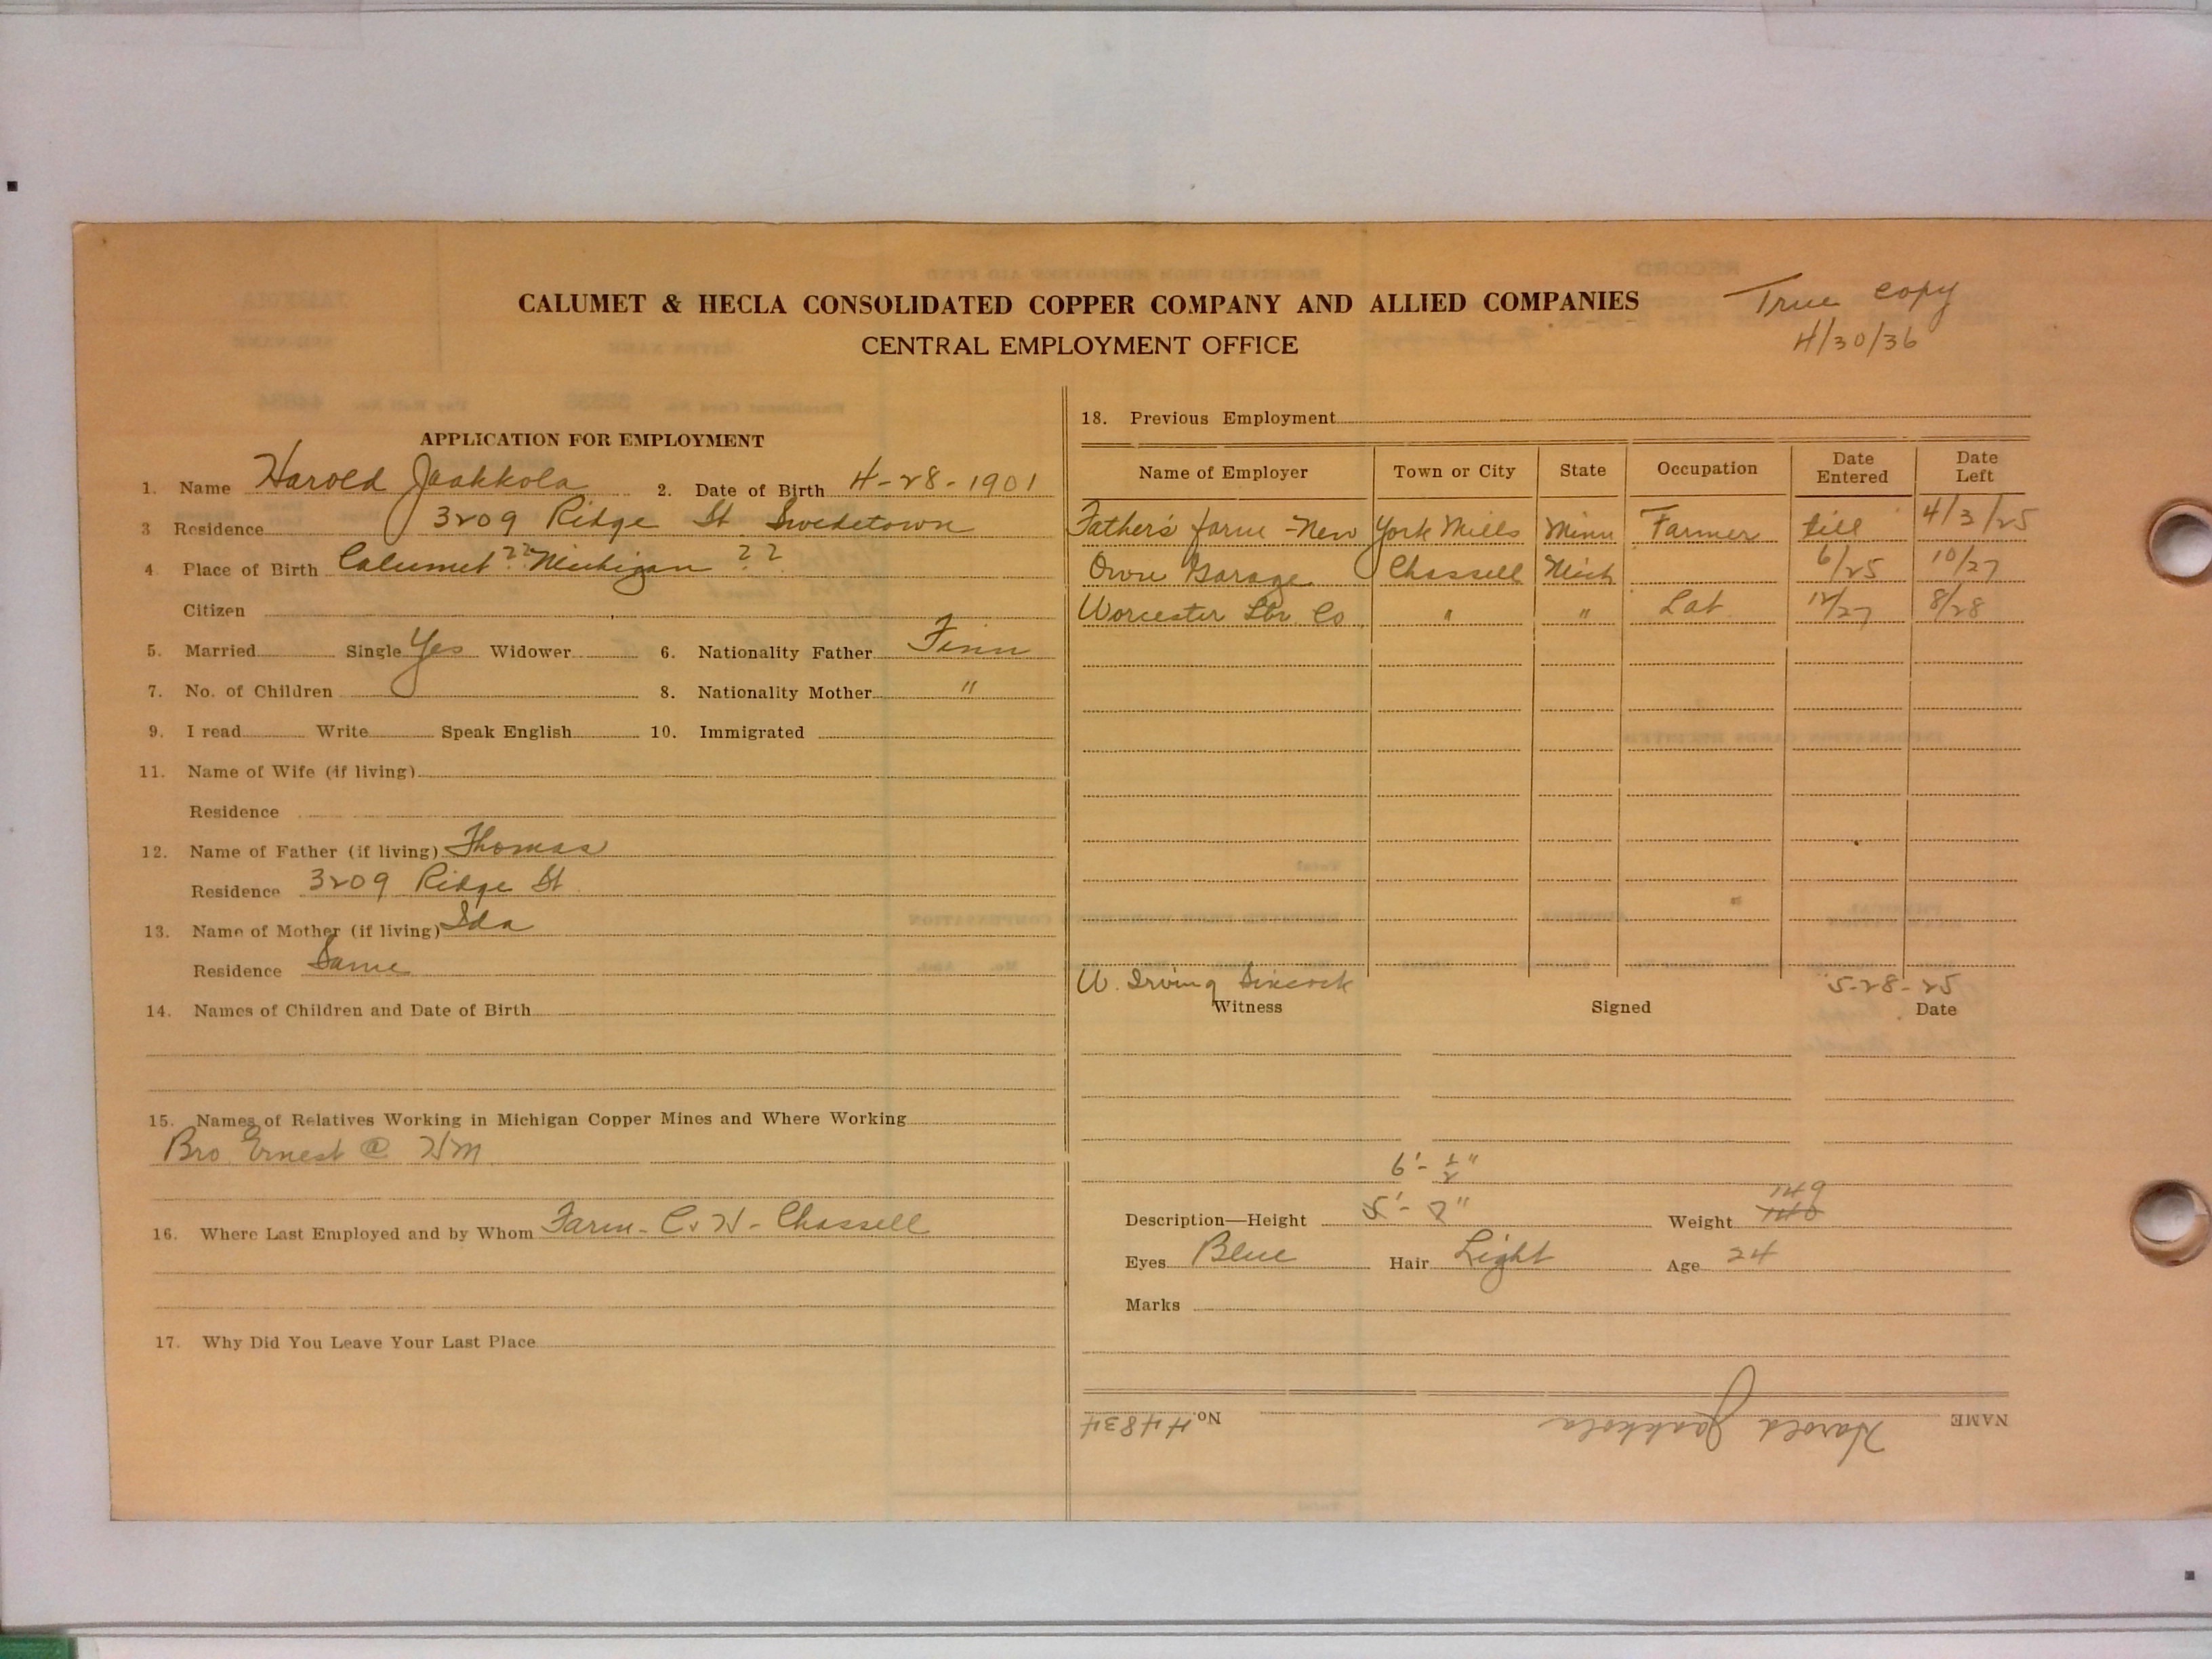 CALUMET & HECLA CONSOLIDATED COPPER COMPANY AND ALLIED COMPANIES
True copy
4/30/36
CENTRAL EMPLOYMENT OFFICE
APPLICATION FOR EMPLOYMENT
1. Name Harold Jaakkola 2. Date of Birth 4-28-1901
3 Residence 3209 Ridge St Swedetown
4. Place of Birth Calumet ?? Michigan ??
Citizen
5. Married Single Yes Widower 6. Nationality Father Finn
7. No. of Children 8. Nationality Mother "
9. I read Write Speak English 10. Immigrated
11. Name of Wife (if living)
Residence
12. Name of Father (if living) Thomas
Residence 3209 Ridge St
13. Name of Mother (if living) Ida
Residence Same
14. Names of Children and Date of Birth
15. Names of Relatives Working in Michigan Copper Mines and Where Working
Bro Ernest @
16. Where Last Employed and by Whom Farm - C & H - Chassell
17. Why Did You Leave Your Last Place
18. Previous Employment
Name of Employer Town or City State Occupation Date Entered Date Left
Father's farm - New York Mills Minn Farmer till 4/3/25
Own Garage Chassell Mich 6/25 10/27
Worcester Lbr. Co " " Lab 12/27 8/28
W. Irving 5-28-25
Witness Signed Date
6'- 1/2"
5'- 7" 149
Description—Height Weight 140
Eyes Blue Hair Light Age 24
Marks
NAME Harold Jaakkola No. 44834